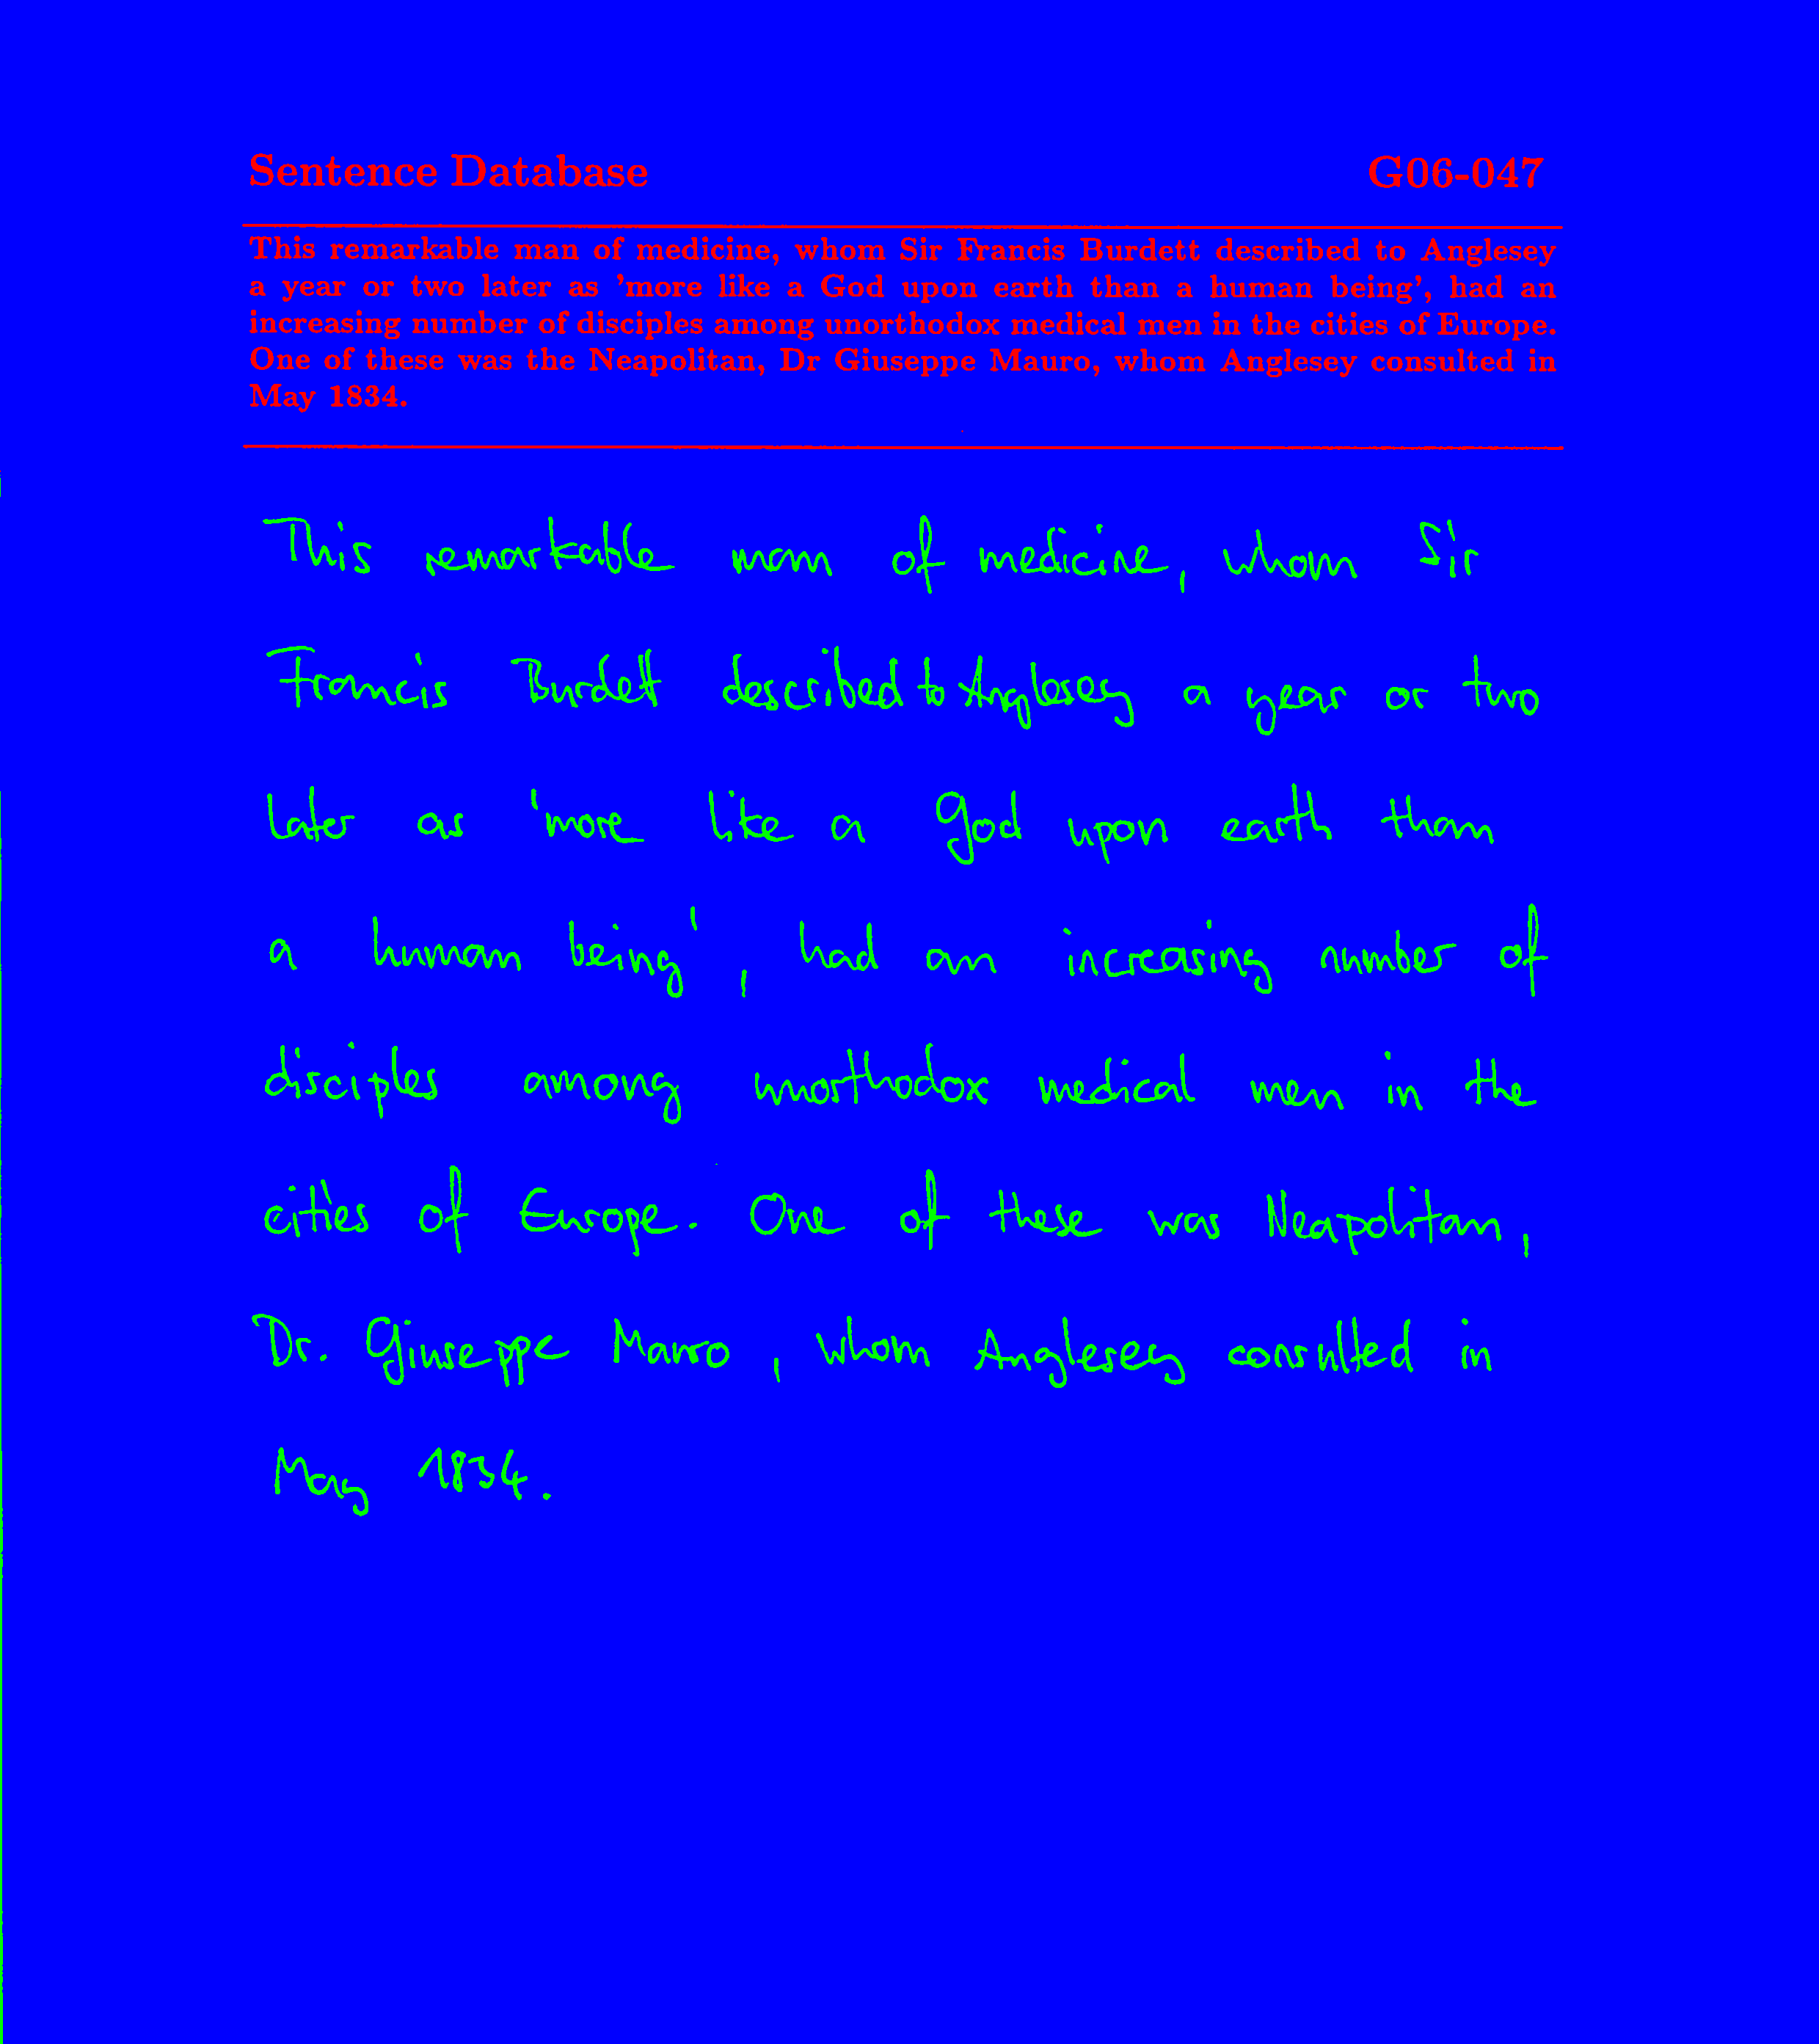 Sentence Database G06-047
This remarkable man of medicine, whom Sir Francis Burdett described to Anglesey
a year or two later as 'more like a God upon earth than a human being', had an
increasing number of disciples among unorthodox medical men in the cities of Europe.
One of these was the Neapolitan, Dr Giuseppe Mauro, whom Anglesey consulted in
May 1834.
This remarkable man of medicine, whom Sir
Francis Burdett described to Anglesey a year or two
later as 'more like a God upon earth than
a human being', had an increasing number of
disciples among unorthodox medical men in the
cities of Europe. One of these was Neapolitan,
Dr. Giuseppe Mauro, whom Anglesey consulted in
May 1834.